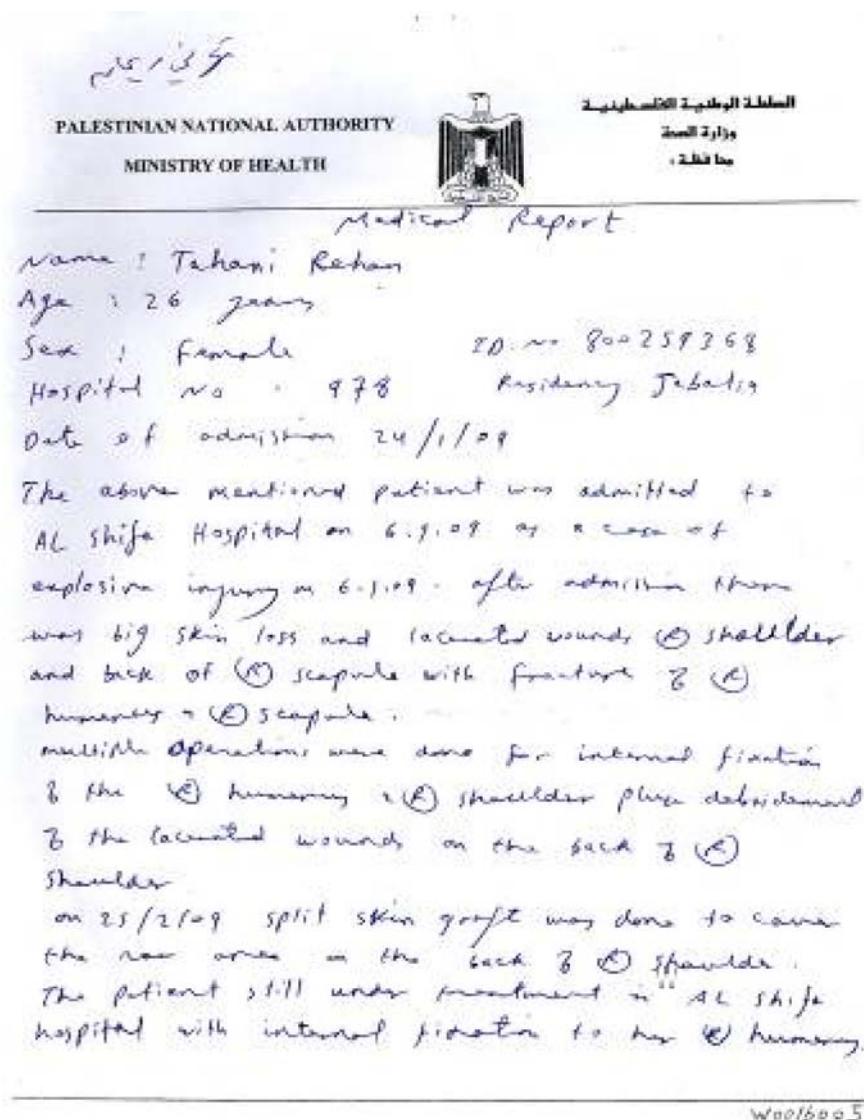 PALESTINIAN NATIONAL AUTHORITY
MINISTRY OF HEALTH
السلطة الوطنية الفلسطينية
وزارة الصحة
محافظة :
Medical Report
Name : Tahani Rehan
Age : 26 years
Sex : Female ID. no 800259368
Hospital No . 978 Residency Jabalia
Date of admission 24/1/09
The above mentioned patient was admitted to
AL Shifa Hospital on 6.1.09 as a case of
explosive injury on 6.1.09. after admission there
was big skin loss and lacerated wounds (R) shoulder
and back of (R) scapula with fracture of (R)
humerus + (R) scapula.
multiple operations were done for internal fixation
of the (R) humerus + (R) shoulder plus debridement
of the lacerated wounds on the back of (R)
shoulder
on 25/2/09 split skin graft was done to cover
the raw area on the back of (R) shoulder.
The patient still under treatment in "AL Shifa
hospital with internal fixation to her (R) humerus.
W0016005